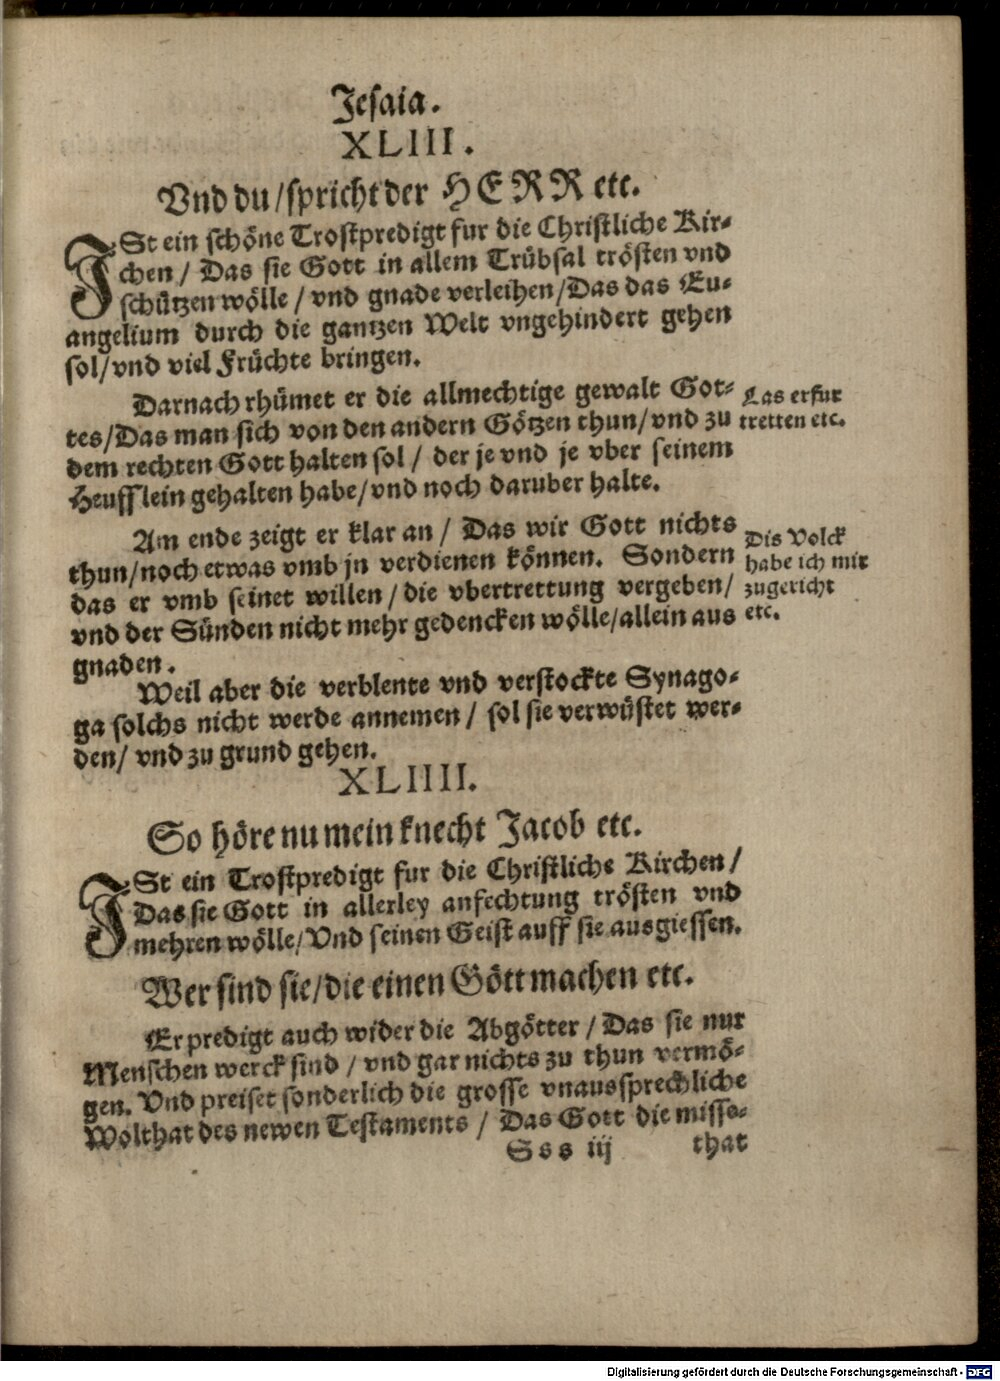 Jesaia.
XLIII.
Vnd du/spricht der HERR etc.
JSt ein schöne Trostpredigt fur die Christliche Kir-
chen / Das sie Gott in allem Trübsal trösten vnd
schützen wölle / vnd gnade verleihen/Das das Eu-
angelium durch die gantzen Welt vngehindert gehen
sol/vnd viel Früchte bringen.
Darnach rhümet er die allmechtige gewalt Got-
tes/Das man sich von den andern Götzen thun/vnd zu
dem rechten Gott halten sol / der je vnd je vber seinem
Heufflein gehalten habe/vnd noch daruber halte.
Las er fur
tretten etc.
Am ende zeigt er klar an / Das wir Gott nichts
thun/noch etwas vmb jn verdienen können. Sondern
das er vmb seinet willen/die vbertrettung vergeben/
vnd der Sünden nicht mehr gedencken wölle/allein aus
gnaden.
Dis Volck
habe ich mir
zugericht
etc.
Weil aber die verblente vnd verstockte Synago-
ga solchs nicht werde annemen / sol sie verwüstet wer-
den/ vnd zu grund gehen.
XLIIII.
So höre nu mein knecht Jacob etc.
JSt ein Trostpredigt fur die Christliche Kirchen/
Das sie Gott in allerley anfechtung trösten vnd
mehren wölle/Vnd seinen Geist auff sie ausgiessen.
Wer sind sie/die einen Gött machen etc.
Er predigt auch wider die Abgötter / Das sie nur
Menschen werck sind / vnd gar nichts zu thun vermö-
gen. Vnd preiset sonderlich die grosse vnaussprechliche
Wolthat des newen Testaments / Das Gott die misse-
Sss iij that
Digitalisierung gefördert durch die Deutsche Forschungsgemeinschaft - DFG